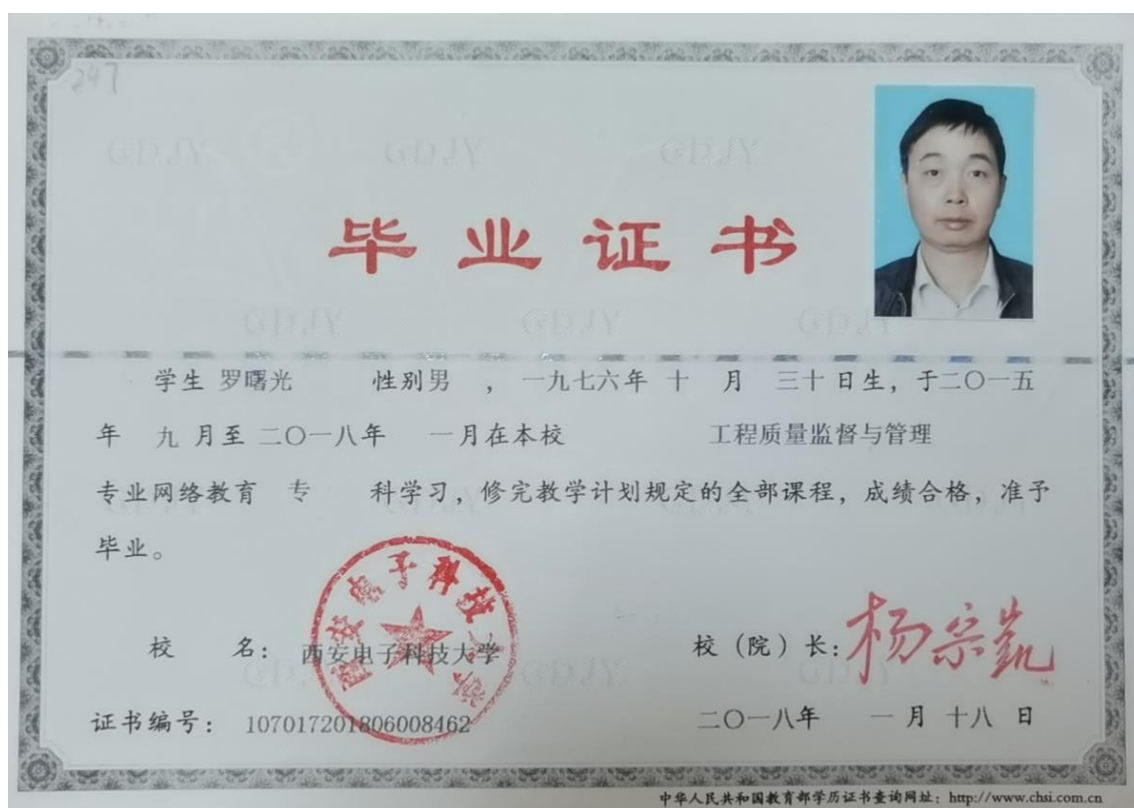 247
GDJY GDJY GDJY
毕业证书
GDJY GDJY GDJY
学生 罗曙光 性别男 ，一九七六年 十 月 三十日生，于二〇一五
年 九 月至 二〇一八年 一月在本校 工程质量监督与管理
专业网络教育 专 科学习，修完教学计划规定的全部课程，成绩合格，准予
毕业。
西安电子科技大学
校 名： 西安电子科技大学
校（院）长：杨宗凯
证书编号： 107017201806008462
二〇一八年 一月 十八 日
中华人民共和国教育部学历证书查询网址：http://www.chsi.com.cn